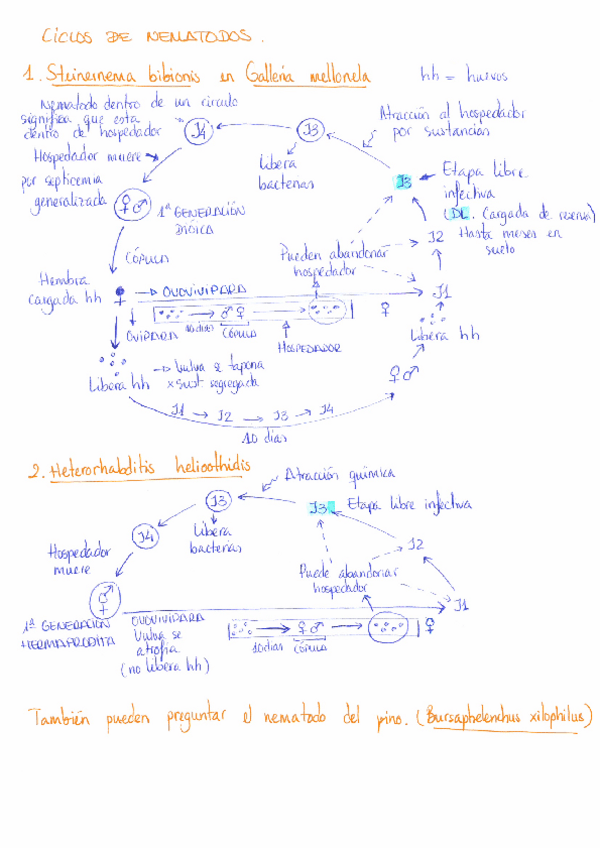 CICLOS DE NEMATODOS.
1. Steinernema bibionis en Galleria mellonela
hh = huevos
Nematodo dentro de un circulo
significa que esta
dentro de hospedador
J4
J3
Atracción al hospedador
por sustancias
Hospedador muere
por septicemia
generalizada
Libera
bacterias
J3
Etapa libre
infectiva
(DL. Cargada de reserva)
Hasta meses en
suelo
♀♂
1ª GENERACIÓN
J2
CÓPULA
Pueden abandonar
hospedador
Hembra
cargada hh
♀
OVOVIVIPARA
J1
OVIPARA
10 dias
♂♀
CÓPULA
♀
HOSPEDADOR
Libera hh
Libera hh
Vulva se tapona
x sust segregada
♀♂
J1 → J2 → J3 → J4
10 dias
2. Heterorhabditis helioothidis
Atracción química
J3
J3
Etapa libre infectiva
J4
Libera
bacterias
J2
Hospedador
muere
Puede abandonar
hospedador
J1
♂
♀
1ª GENERACIÓN
HERMAFRODITA
OVOVIVIPARA
Vulva se
atrofia
(no libera hh)
♀♂
♀
10 dias
CÓPULA
También pueden preguntar el nematodo del pino. (Bursaphelenchus xilophilus)